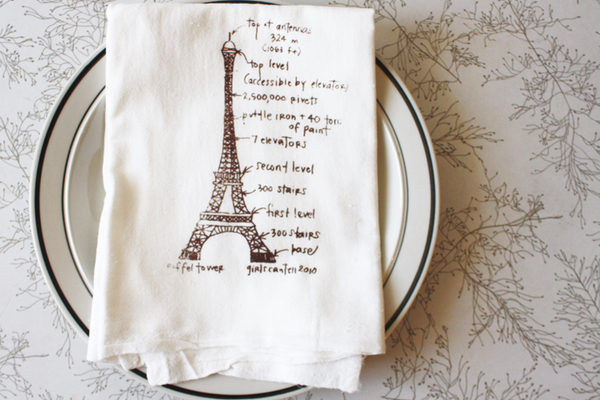 top of antennas
324 m
(1063 ft)
top level
(accessible by elevator)
2,500,000 rivets
puddle iron + 40 tons
of paint
7 elevators
second level
300 stairs
first level
300 stairs
base
eiffel tower
girlscantell 2010